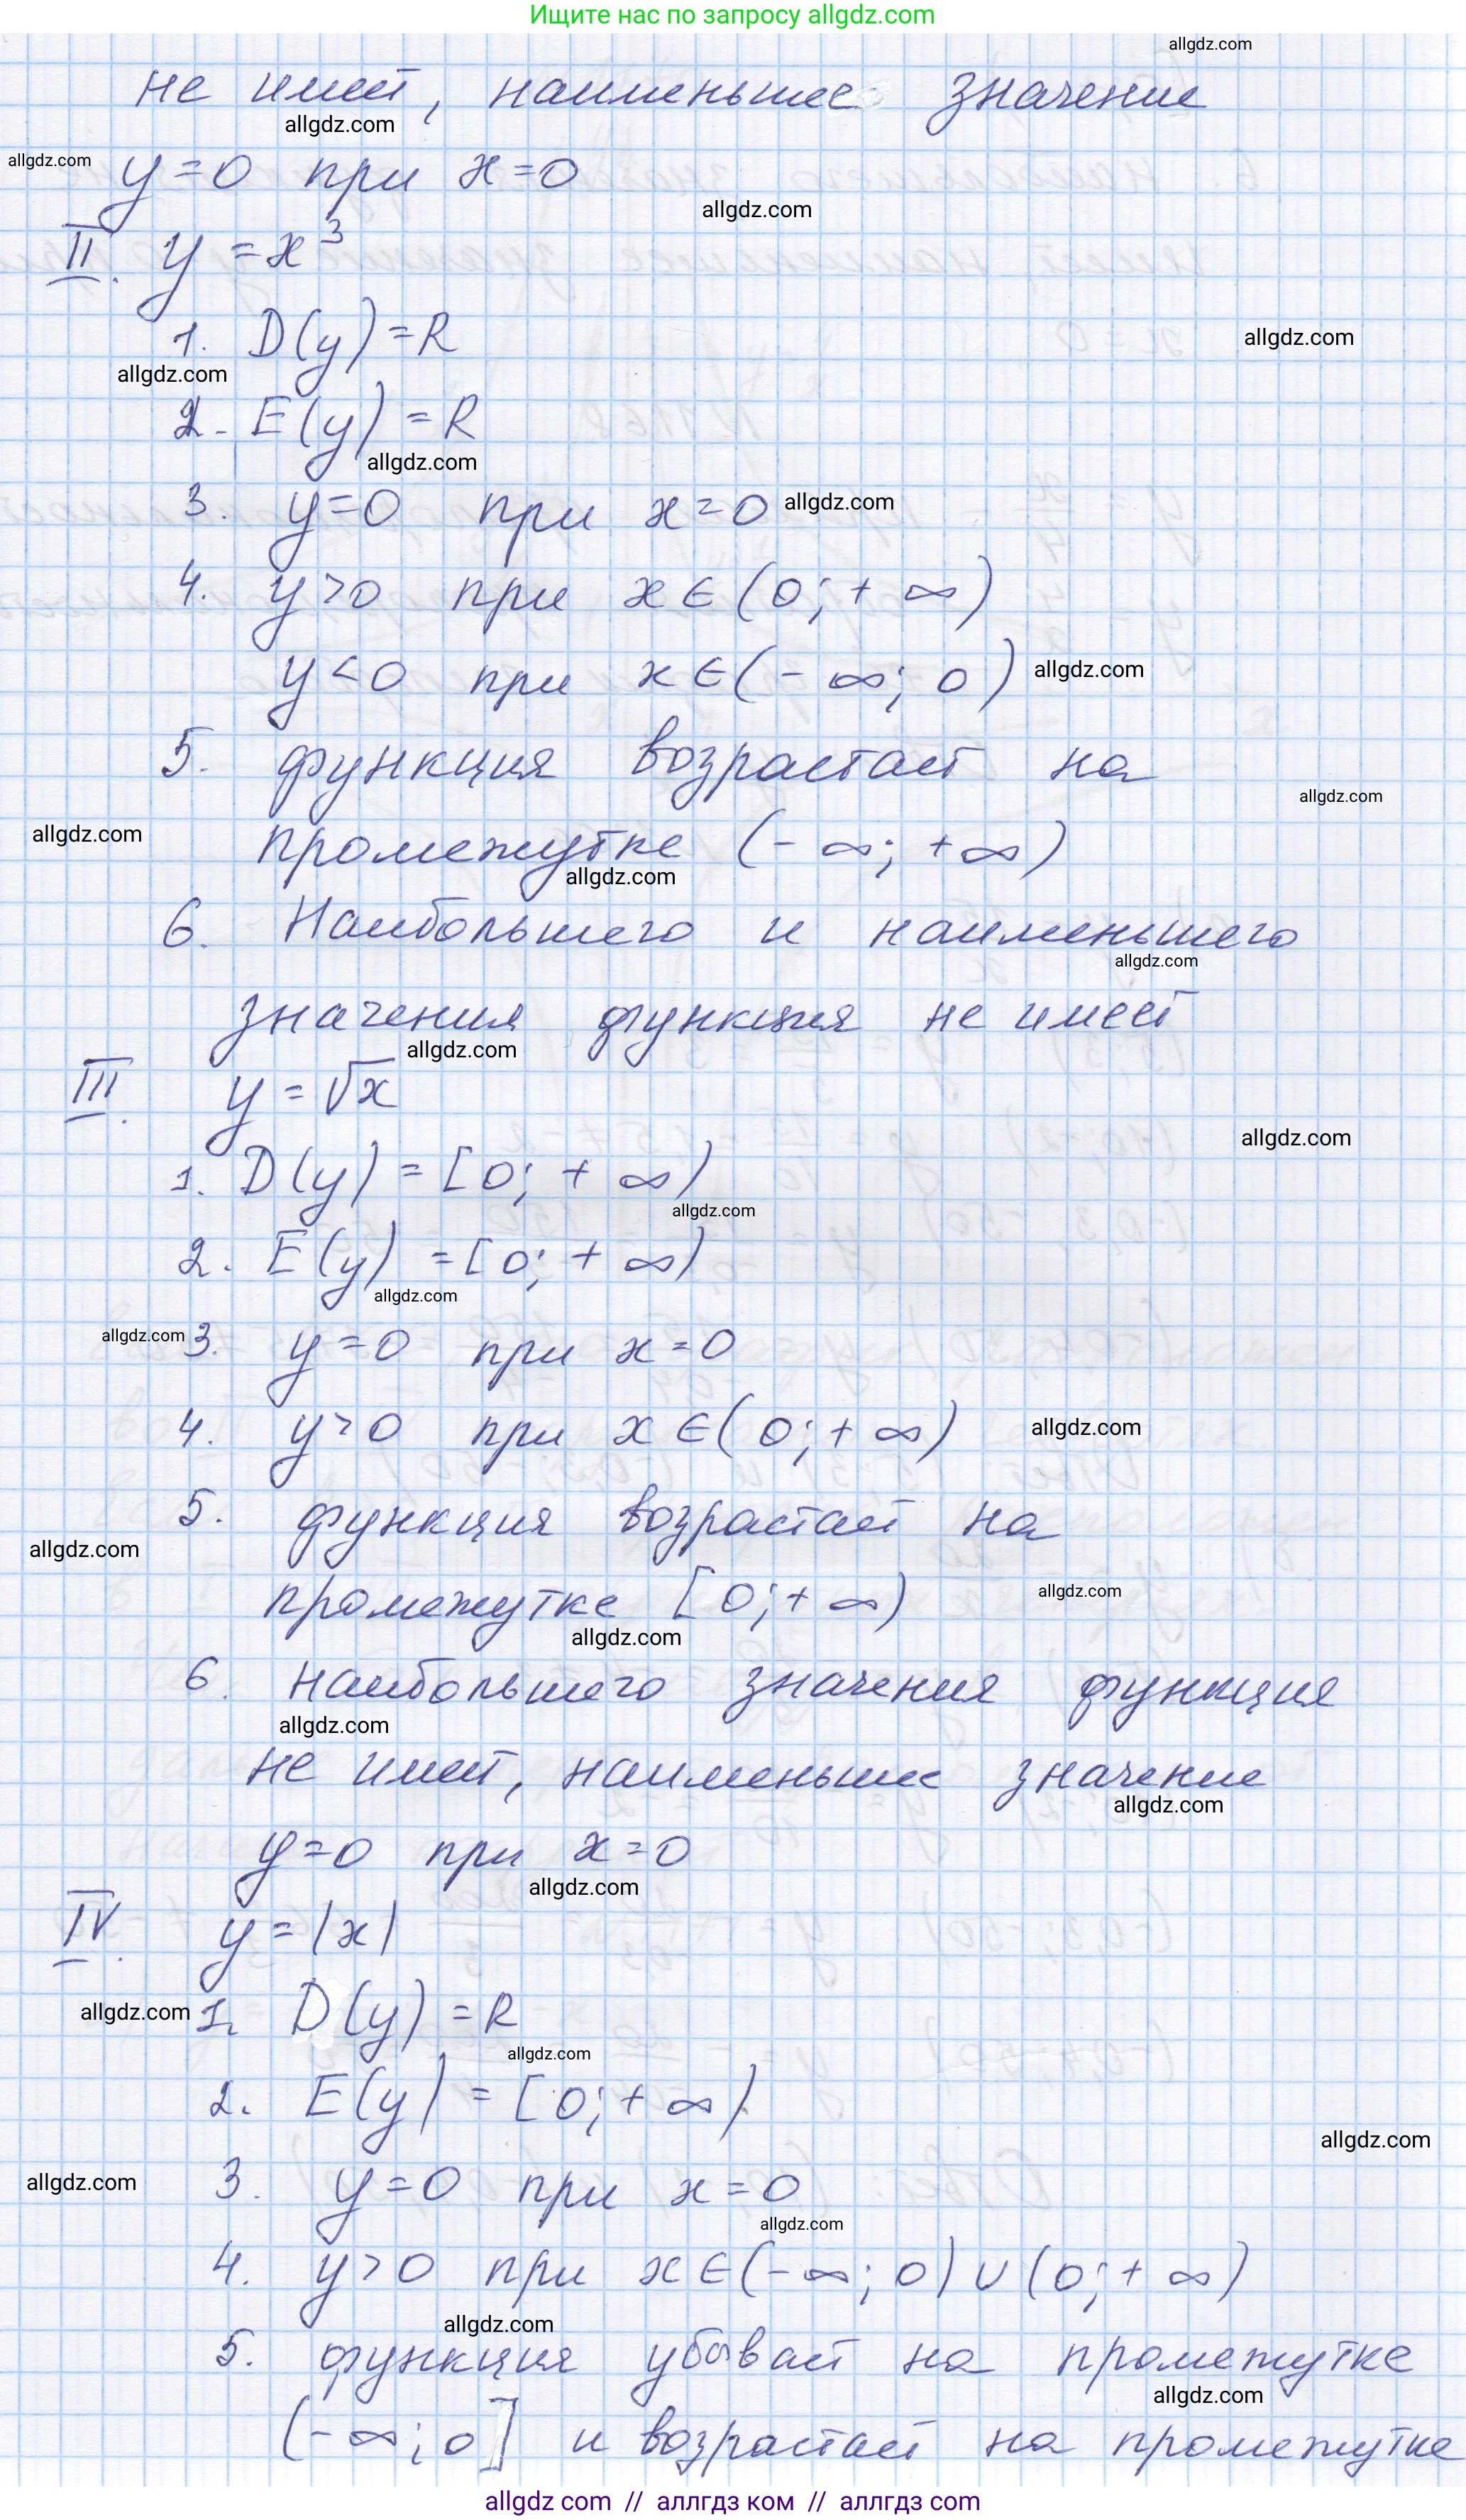 Ищите нас по запросу allgdz.com
allgdz.com
не имеет, наименьшее значение
allgdz.com
allgdz.com
y=0 при x=0
allgdz.com
II. y=x³
1. D(y)=R
allgdz.com
allgdz.com
2. E(y)=R
allgdz.com
3. y=0 при x=0 allgdz.com
4. y>0 при x∈(0;+∞)
y<0 при x∈(-∞;0) allgdz.com
5. функция возрастает на
allgdz.com
allgdz.com
промежутке (-∞;+∞)
allgdz.com
6. Наибольшего и наименьшего
allgdz.com
значения функция не имеет
allgdz.com
III. y=√x
allgdz.com
1. D(y)=[0;+∞)
allgdz.com
2. E(y)=[0;+∞)
allgdz.com
allgdz.com 3. y=0 при x=0
4. y>0 при x∈(0;+∞) allgdz.com
5. функция возрастает на
allgdz.com
промежутке [0;+∞) allgdz.com
allgdz.com
6. наибольшего значения функция
allgdz.com
не имеет, наименьшее значение
allgdz.com
y=0 при x=0
allgdz.com
IV. y=|x|
allgdz.com 1. D(y)=R
allgdz.com
2. E(y)=[0;+∞)
allgdz.com
allgdz.com 3. y=0 при x=0
allgdz.com
4. y>0 при x∈(-∞;0)∪(0;+∞)
allgdz.com
5. функция убывает на промежутке
allgdz.com
(-∞;0] и возрастает на промежутке
allgdz.com // аллгдз ком // аллгдз com